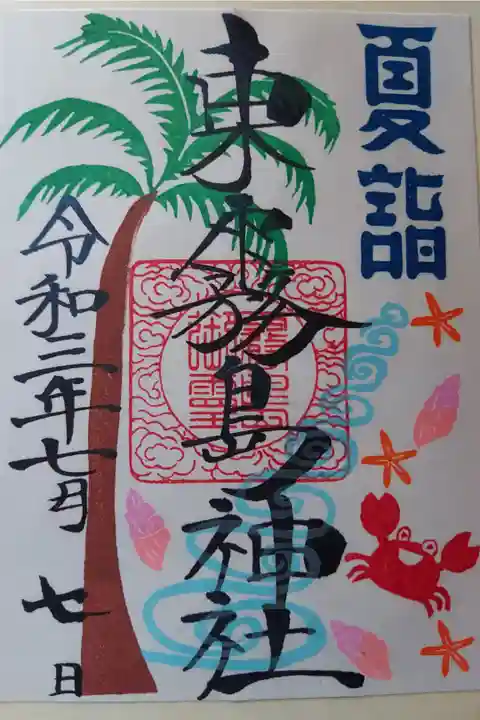 夏詣
東霧島ノ神社
令和三年七月七日